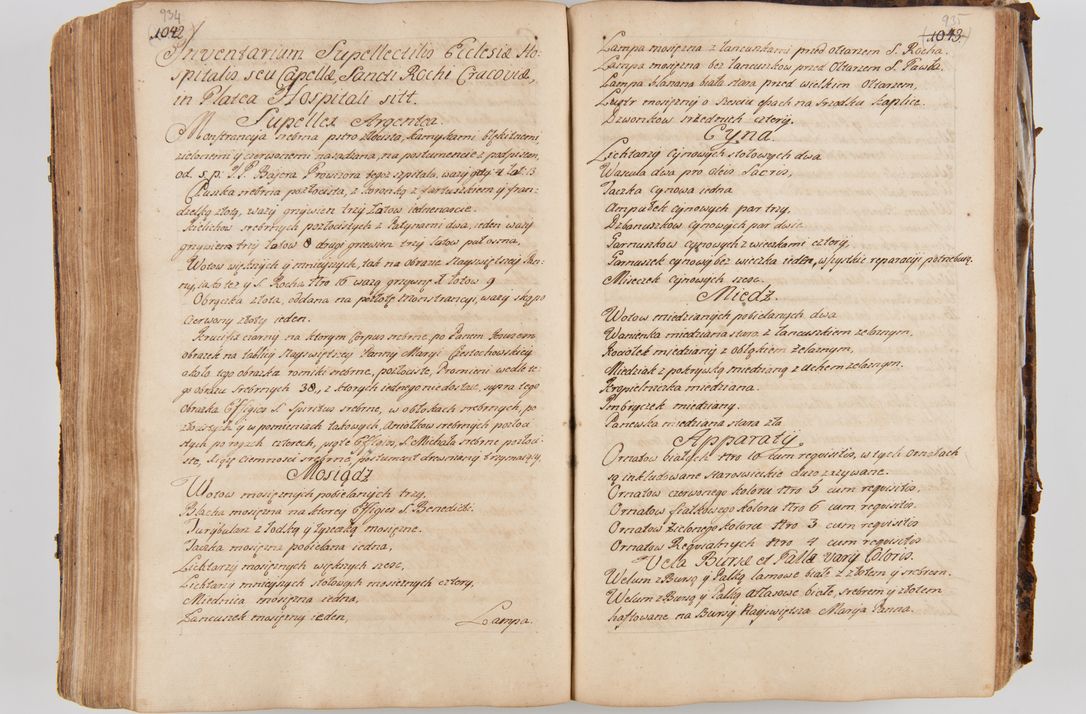 934
1042
Inventarium Supellectilis Ecclesiæ Ho-
spitalis seu Capellæ Sancti Rochi Cracoviæ,
in Platea Hospitali sitt.
Supellex Argentea.
Monstrancja srebrna suto złocista, kamyszkami błękitnemi,
zielonemi y czerwonemi nasadzana, na postumencie z podpisem,
od s. p. J. P. Bajera Prowizora tegoż szpitala, waży grzy: 4 łat: 13
Puszka srebrna pozłocista, z koronką z fartuszkiem y fran-
dzelką złotą, waży grzywien trzy łatow iedenascie.
Kielichow srebrnych pozłocistych z Patynami dwa, ieden waży
grzywien trzy łatow 8 drugi grzewien trzy łatow puł osma,
Wotow większych y mnieyszych, tak na obrazie Nayświętszey Pan-
ny, iako też y S. Rocha Nro 16 ważą grzywnę 1 łotow 9
Obrączka złota, oddana na pozłotę Monstrancyi, waży skąpo
Czerwony złoty ieden.
Krucifix czarny na ktorym Corpus srebrne, po Panem Jezusem
obrazek na tablicy Nayświętszey Panny Maryi Częstochowskiey
około tego obrazka romiki srebrne, pozłociste, Promieni wedle te-
go obrazu srebrnych 38, z ktorych iednego niedostaie, supra tego
obrazka Effigies S. Spiritus srebrne, w obłokach srebrnych, po
złocistych y w pomieniach takowych, Aniołkow srebrnych pozłoci
stych po rogach czterech, wyżey Effigies, S. Michała srebrne pozłoci-
ste, Xiążę ciemności srebrne, postument drewniany trzymaiący,
Mosiądz
Wotow mosiężnych pobielanych trzy,
Blacha mosiężna na ktorey Effigies S. Benedicti.
Turybularz z łodką y łyszczką mosiężne.
Taczka mosiężna pobielana iedna,
Lichtarzy mosiężnych większych szesc,
Lichtarzy mnieyszych stołowych mosiężnych cztery,
Miednica mosiężna iedna,
Łancuszek mosiężny ieden,
Lampa.
935
1043
Lampa mosiężna z łancuszkami przed ołtarzem S. Rocha.
Lampa mosiężna bez łancuszkow przed Ołtarzem S. Pawła.
Lampa blaszana biała stara przed wielkim Ołtarzem,
Lustr mosiężny o szesciu esach na srzodku kaplice.
Dzwonkow srzednich cztery,
Cyna.
Lichtarzy cynowych stołowych dwa
Wascula dwa pro oleis Sacris,
Taczka cynowa iedna
Ampułek cynowych par trzy,
Dzbanuszkow cynowych par dwie
Garnuszkow cynowych z wieczkami cztery,
Garnuszek cynowy bez wieczka ieden, wszystkie reparacyi potrzebuią,
Miseczek cynowych szesc.
Miedz.
Wotow miedzianych pobielanych dwa
Wanienka miedziana stara z łancuszkiem żelaznym,
Kociołek miedziany z obłąkiem żelaznym,
Miedziak z pokrywką miedzianą z uchem żelaznym.
Kropielniczka miedziana.
Imbryczek miedziany.
Panewka miedziana stara zła
Apparaty.
Ornatow białych Nro 10 cum requisitis, w tych ornatach
są inkludowane staroswieckie dużo zażywane.
Ornatow czerwonego koloru Nro 5 cum requisitis,
Ornatow fiałkowego koloru Nro 6 cum requisitis.
Ornatow zielonego koloru Nro 3 cum requisitis
Ornatow Requialnych Nro 4 cum requisitis
Vela Bursæ et Pallæ varij Coloris.
Welum z Bursą y Palką lamowe białe z złotem y srebrem.
Welum z Bursą y Palką atłasowe białe, srebrem y złotem
haftowane na Bursy Nayświętsza Maryja Panna.